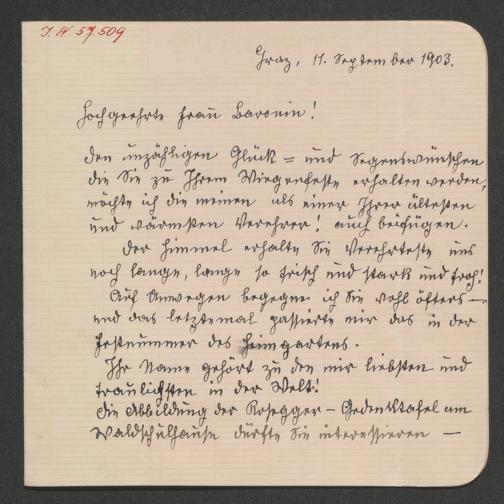 J. N 57.509
Graz, 11. September 1903.
Hochgeehrte Frau Baronin!
Den unzähligen Glück = und Segenswünschen
die Sie zu Ihrem Wiegenfeste erhalten werden,
möchte ich die meinen als einer Ihrer ältesten
und wärmsten Verehrer! auch beifügen.
Der Himmel erhalte Sie Verehrteste uns
noch lange, lange so frisch und stark und froh!
Auf Umwegen begegne ich Sie wohl öfters –
und das letztemal passierte mir das in der
Festnummer des Heimgartens.
Ihr Name gehört zu den mir liebsten und
traulichsten in der Welt!
Die Abbildung der Rosegger – Gedenktafel am
Waldschulhause dürfte Sie interessieren –